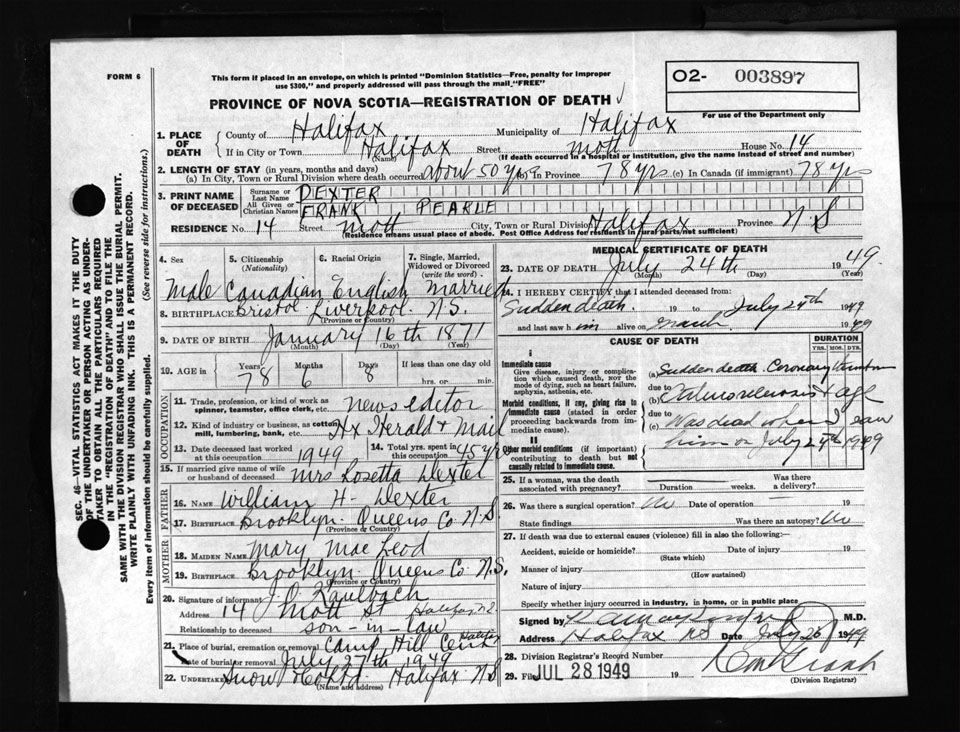 FORM 6
This form if placed in an envelope, on which is printed "Dominion Statistics—Free, penalty for improper
use $300," and properly addressed will pass through the mail "FREE"
O2- 003897
PROVINCE OF NOVA SCOTIA—REGISTRATION OF DEATH
For use of the Department only
1. PLACE OF DEATH
County of Halifax Municipality of Halifax
If in City or Town Halifax Street Mott House No. 14
(Name) (If death occurred in a hospital or institution, give the name instead of street and number)
2. LENGTH OF STAY (in years, months and days)
(a) In City, Town or Rural Division where death occurred about 50 yrs In Province 78 yrs (c) In Canada (if immigrant) 78 yrs
3. PRINT NAME OF DECEASED
Surname or Last Name DEXTER
All Given or Christian Names FRANK PEARLE
RESIDENCE No. 14 Street Mott City, Town or Division Halifax Province N S
(Residence means usual place of abode. Post Office Address for residents in rural parts not sufficient)
4. Sex 5. Citizenship (Nationality) 6. Racial Origin 7. Single, Married, Widowed or Divorced (write the word)
Male Canadian English Married
8. BIRTHPLACE Bristol Liverpool N.S.
(Province or Country)
9. DATE OF BIRTH January 16th 1871
(Month) (Day) (Year)
10. AGE in Years Months Days If less than one day old
78 6 8 hrs. or min.
OCCUPATION
11. Trade, profession, or kind of work as
spinner, teamster, office clerk, etc. news editor
12. Kind of industry or business, as cotton
mill, lumbering, bank, etc. Hx Herald & Mail
13. Date deceased last worked
at this occupation 1949
14. Total yrs. spent in
this occupation 45 yrs
15. If married give name of wife
or husband of deceased Mrs Rosetta Dexter
FATHER
16. NAME William H. Dexter
17. BIRTHPLACE Brooklyn Queens Co N.S.
(Province or Country)
MOTHER
18. MAIDEN NAME Mary Mac Leod
19. BIRTHPLACE Brooklyn Queens Co N.S.
(Province or Country)
20. Signature of informant J.C. Kaulbach
Address 14 Mott St Halifax N.S.
Relationship to deceased son-in-law
21. Place of burial, cremation or removal Camp Hill Cem Halifax
Date of burial or removal July 27th 1949
22. Undertaker Snow Halifax N S
(Name and address)
MEDICAL CERTIFICATE OF DEATH
23. DATE OF DEATH July 24th 1949
(Month) (Day) (Year)
I HEREBY CERTIFY that I attended deceased from:
Sudden death. 19 to July 24th 1949
and last saw h im alive on March 1949
CAUSE OF DEATH
DURATION
YRS. MOS. DYS.
I
Immediate cause
Give disease, injury or complication which caused death, not the mode of dying, such as heart failure, asphyxia, asthenia, etc.
(a) Sudden death. Coronary
due to
Morbid conditions, if any, giving rise to immediate cause (stated in order proceeding backwards from immediate).
(b) & age
due to
(c) Was dead when I saw
him on July 24th 1949
II
Other morbid conditions (if important) contributing to death but not causally related to immediate cause.
25. If a woman, was the death associated with pregnancy? Duration weeks. Was there a delivery?
26. Was there a surgical operation? No Date of operation 19
State findings Was there an autopsy? No
27. If death was due to external causes (violence) fill in also the following:
Accident, suicide or homicide? Date of injury 19
(State which)
Manner of injury
(How sustained)
Nature of injury
Specify whether injury occurred in industry, in home, or in public place
Signed by M.D.
Address Halifax NS Date July 26 1949
28. Division Registrar's Record Number
29. Filed JUL 28 1949 19
(Division Registrar)
SEC. 46—VITAL STATISTICS ACT MAKES IT THE DUTY
OF THE UNDERTAKER OR PERSON ACTING AS UNDER-
TAKER TO OBTAIN ALL THE PARTICULARS REQUIRED
IN THE "REGISTRATION OF DEATH" AND TO FILE THE
SAME WITH THE DIVISION REGISTRAR WHO SHALL ISSUE THE BURIAL PERMIT.
WRITE PLAINLY WITH UNFADING INK. THIS IS A PERMANENT RECORD.
Every item of information should be carefully supplied. (See reverse side for instructions.)